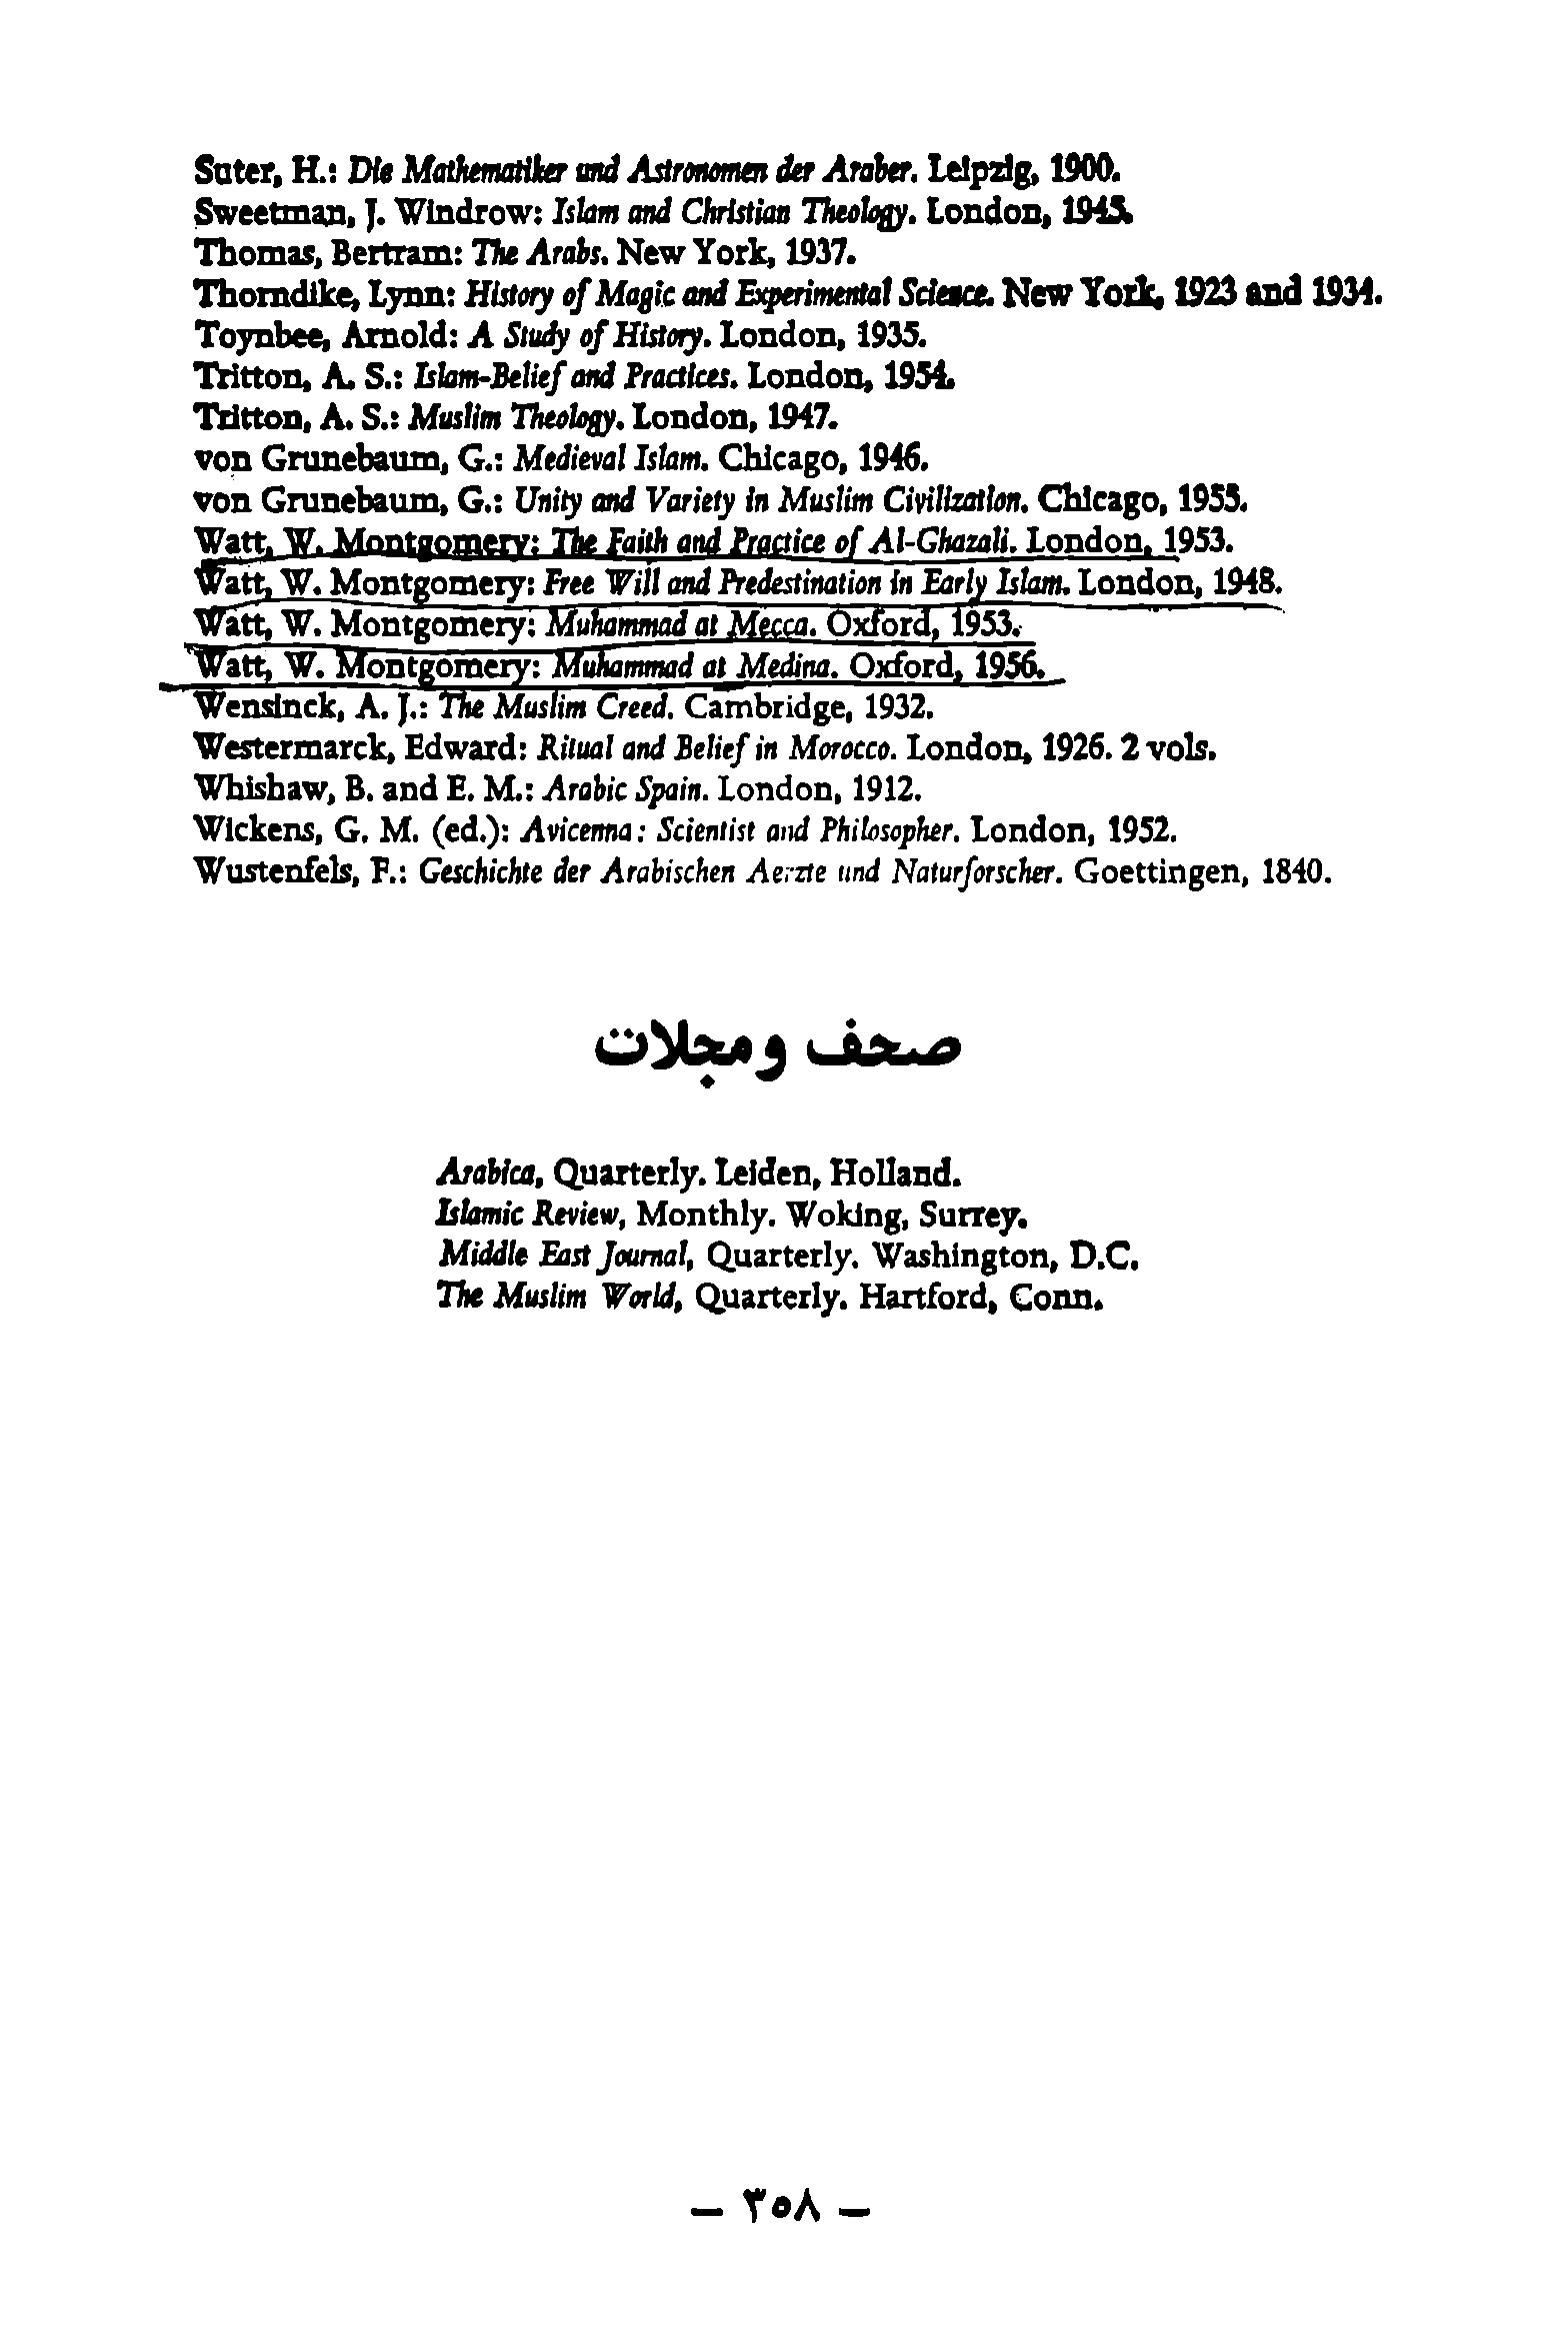 Suter, H.: Die Mathematiker und Astronomen der Araber. Leipzig, 1900.
Sweetman, J. Windrow: Islam and Christian Theology. London, 1945.
Thomas, Bertram: The Arabs. New York, 1937.
Thorndike, Lynn: History of Magic and Experimental Science. New York, 1923 and 1934.
Toynbee, Arnold: A Study of History. London, 1935.
Tritton, A. S.: Islam-Belief and Practices. London, 1954.
Tritton, A. S.: Muslim Theology. London, 1947.
von Grunebaum, G.: Medieval Islam. Chicago, 1946.
von Grunebaum, G.: Unity and Variety in Muslim Civilization. Chicago, 1955.
Watt, W. Montgomery: The Faith and Practice of Al-Ghazali. London, 1953.
Watt, W. Montgomery: Free Will and Predestination in Early Islam. London, 1948.
Watt, W. Montgomery: Muhammad at Mecca. Oxford, 1953.
Watt, W. Montgomery: Muhammad at Medina. Oxford, 1956.
Wensinck, A. J.: The Muslim Creed. Cambridge, 1932.
Westermarck, Edward: Ritual and Belief in Morocco. London, 1926. 2 vols.
Whishaw, B. and E. M.: Arabic Spain. London, 1912.
Wickens, G. M. (ed.): Avicenna: Scientist and Philosopher. London, 1952.
Wustenfels, F.: Geschichte der Arabischen Aerzte und Naturforscher. Goettingen, 1840.
صحف ومجلات
Arabica, Quarterly. Leiden, Holland.
Islamic Review, Monthly. Woking, Surrey.
Middle East Journal, Quarterly. Washington, D.C.
The Muslim World, Quarterly. Hartford, Conn.
– ٣٥٨ –